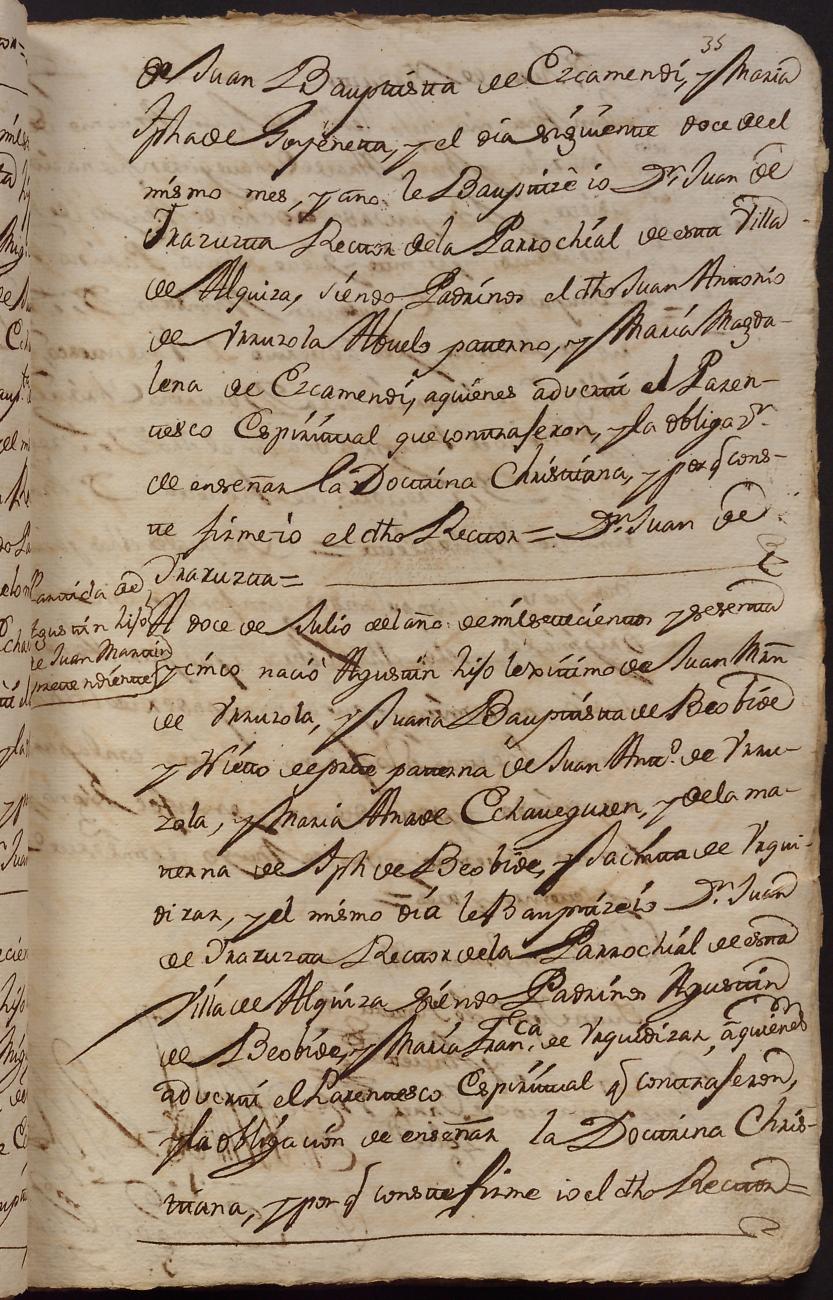 35
de Juan Bauptista de Ezcamendi, y Maria
Jpha de Goyeneta, y el dia siguiente doce de el
mismo mes, y año le Bauptizè io Dn. Juan de
Irazuzta Rector de la Parrochial de esta Villa
de Alquiza, siendo Padrinos el dho Juan Antonio
de Urruzola Abuelo paterno, y Maria Magda-
lena de Ezcamendi, aquienes adverti el Paren-
tesco Espiritual que contrajeron, y la obligaon.
de enseñar la Doctrina Christiana, y por q cons-
te firme io el dho Rector = Dn. Juan de
Irazuzta =
Partida de
Agustin hijo
de Juan Martin
pretendiente
A doce de Julio del año de mil setecientos y sesenta
y cinco naciò Agustin hijo lexitimo de Juan Mrn
de Urruzola, y Juana Bauptista de Beobide
y Nieto de prte paterna de Juan Anto. de Urru-
zola, y Maria Ana de Echaveguren, y de la ma-
terna de Jph de Beobide, y Jacinta de Urqui-
dizar, y el mismo dia le Bauptizè io Dn. Juan
de Irazuzta Rector de la Parrochial de esta
Villa de Alquiza siendo Padrinos Agustin
de Beobide, y Maria Franca. de Urquidizar, àquienes
adverti el Parentesco Espiritual q contrajeron,
y la obligacion de enseñar la Doctrina Chris-
tiana, y por q conste firme io el dho Rector =